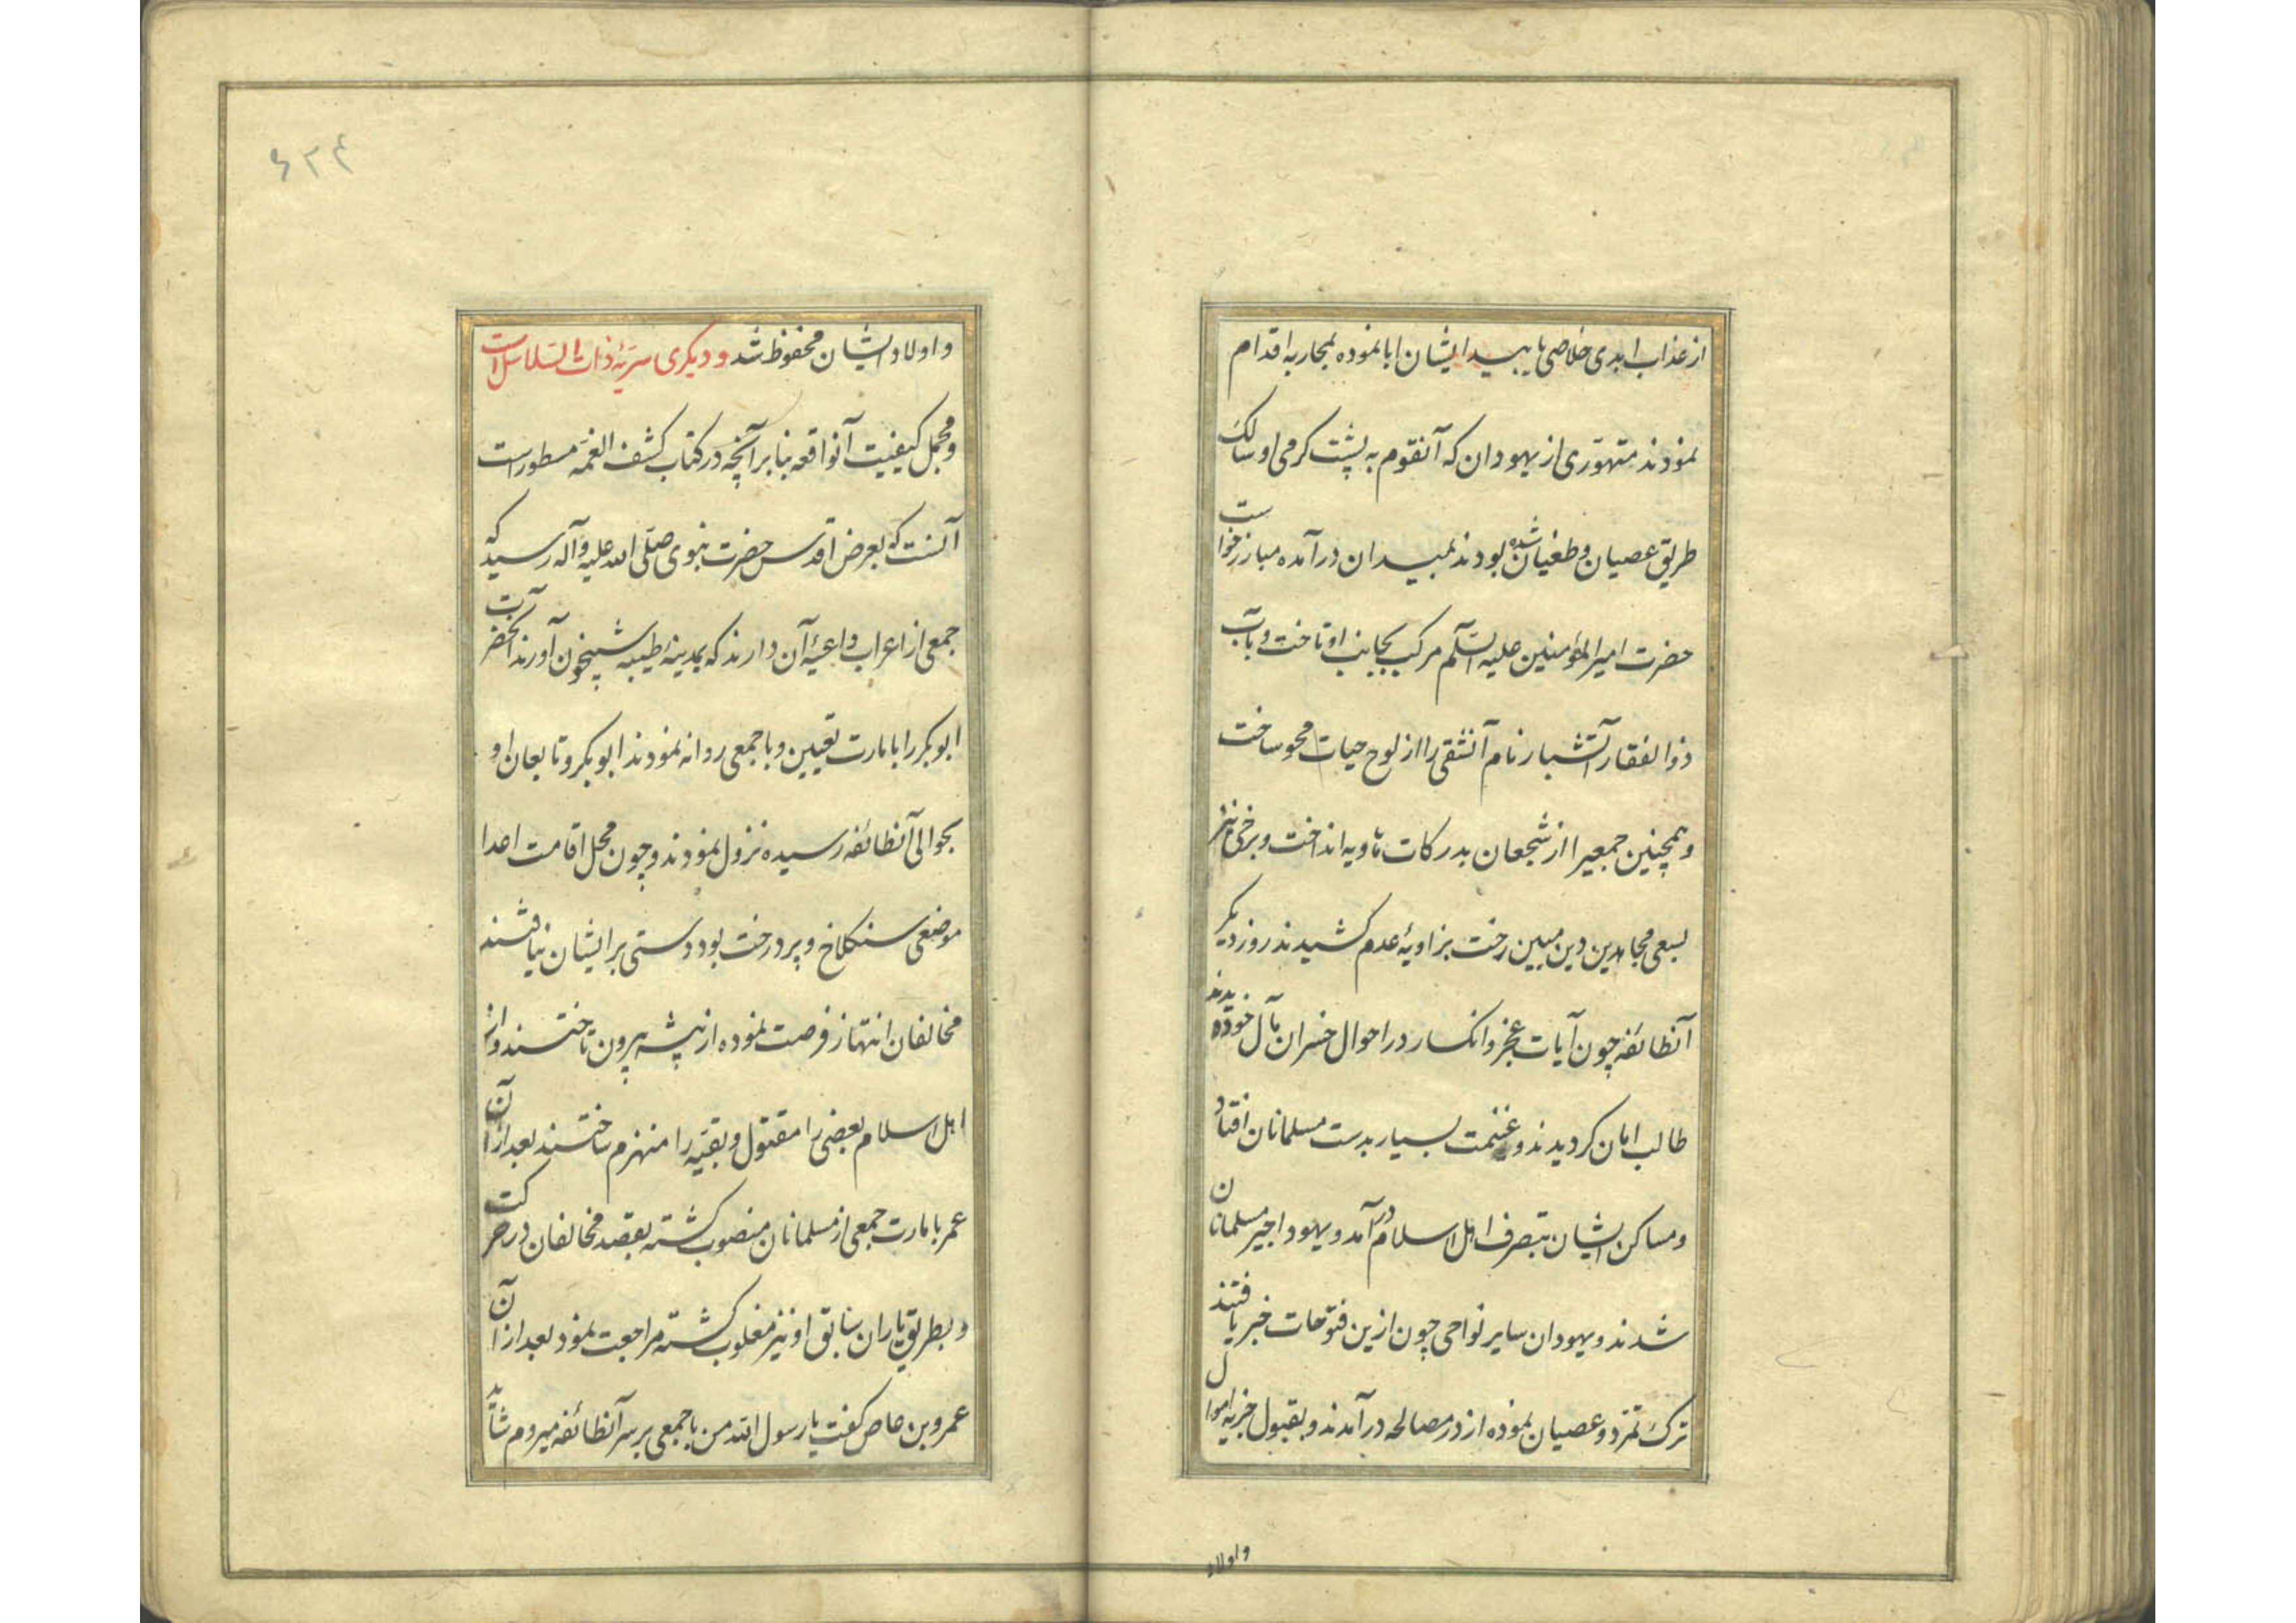 از عذاب ابدی خلاصی یابید ایشان ابا نموده بمحاربه اقدام
نمودند متهوّری از یهودان که آنقوم به پشت گرمی او سالک
طریق عصیان و طغیان شده بودند بمیدان درآمده مبارز خواست
حضرت امیرالمؤمنین علیه السّلم مرکب بجانب او تاخت و بآب
ذوالفقار آتشبار نام آنشقی را از لوح حیات محو ساخت
و همچنین جمعیرا از شجعان بدرکات هاویه انداخت و برخی نیز
بسعی مجاهدین دین مبین رخت بزاویهٔ عدم کشیدند روز دیکر
آنطائفه چون آیات عجز و انکسار در احوال خسران مآل خود دیدند
طالب امان کردیدند و غنیمت بسیار بدست مسلمانان افتاد
و مساکن ایشان بتصرف اهل اسلام درآمد و یهود اجیر مسلمانان
شدند و یهودان سایر نواحی چون ازین فتوحات خبر یافتند
ترک تمرّد و عصیان نموده از در مصالحه درآمدند و بقبول جزیه اموال
و اولاد
۶۲۴
و اولاد ایشان محفوظ شد و دیکری سریّهٔ ذات السّلاسل است
و مجمل کیفیت آنواقعه بنا بر آنچه در کتاب کشف الغمّه مسطور است
آنست که بعرض اقدس حضرت نبوی صلّی الله علیه وآله رسید که
جمعی از اعراب داعیهٔ آن دارند که بمدینهٔ طیبه شبیخون آورند آنحضرت
ابوبکر را بامارت تعیین و با جمعی روانه نمودند ابوبکر و تابعان او
بحوالی آنطائفه رسیده نزول نمودند و چون محل اقامت اعدا
موضعی سنکلاخ و پر درخت بود دستی بر ایشان نیافتند
مخالفان انتهاز فرصت نموده از بیشه بیرون تاختند و از
اهل اسلام بعضی را مقتول و بقیّه را منهزم ساختند بعد از آن
عمر بامارت جمعی از مسلمانان منصوب کشته بقصد مخالفان در حرکت
و بطریق یاران سابق او نیز مغلوب کشته مراجعت نمود بعد از آن
عمرو بن عاص کفت یا رسول الله من با جمعی بر سر آنطائفه میروم شاید